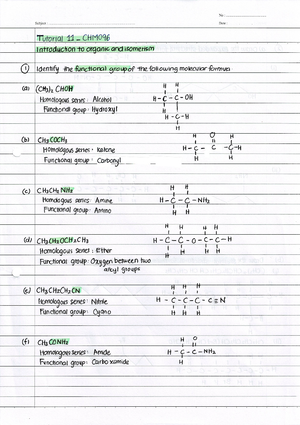 No :
Subject :
Date :
Tutorial 11 - CHM096
Introduction to organic and isomerism
① Identify the functional group of the following molecular formula
(a) (CH3)2 CHOH
Homologous series : Alcohol
Functional group : Hydroxyl
H H
H - C - C - OH
H - C - H
H
(b) CH3COCH3
Homologous series : Ketone
Functional group : Carbonyl
H O H
H - C C C - H
H H
(c) CH3CH2NH2
Homologous series : Amine
Functional group : Amino
H H
H - C - C - NH2
H H
(d) CH3CH2OCH2CH3
Homologous series : Ether
Functional group : Oxygen between two
alkyl groups
H H H H
H - C - C - O - C - C - H
H H H H
(e) CH3CH2CH2CN
Homologous series : Nitrile
Functional group : Cyano
H H H
H - C - C - C - C ≡ N
H H H
(f) CH3CONH2
Homologous series : Amide
Functional group : Carboxamide
H O
H - C - C - NH2
H